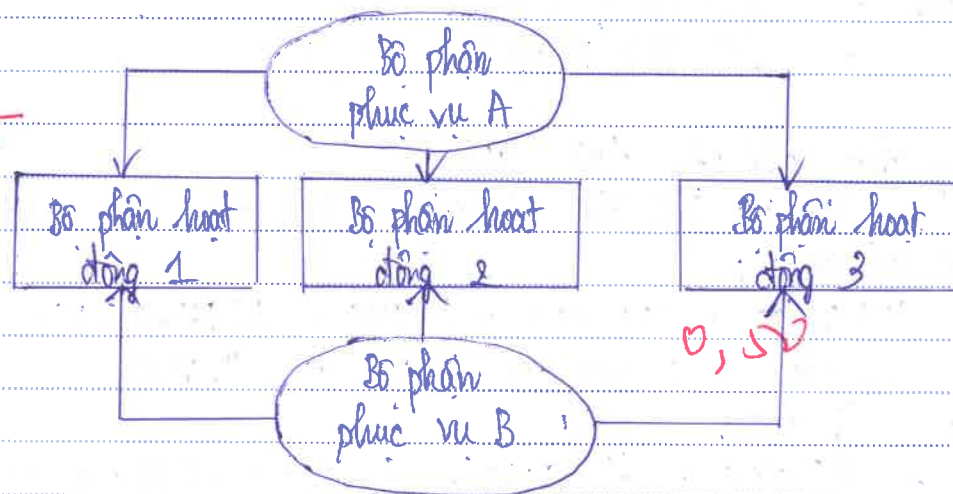 Bộ phận
phục vụ A
Bộ phận hoạt
động 1
Bộ phận hoạt
động 2
Bộ phận hoạt
động 3
0,50
Bộ phận
phục vụ B